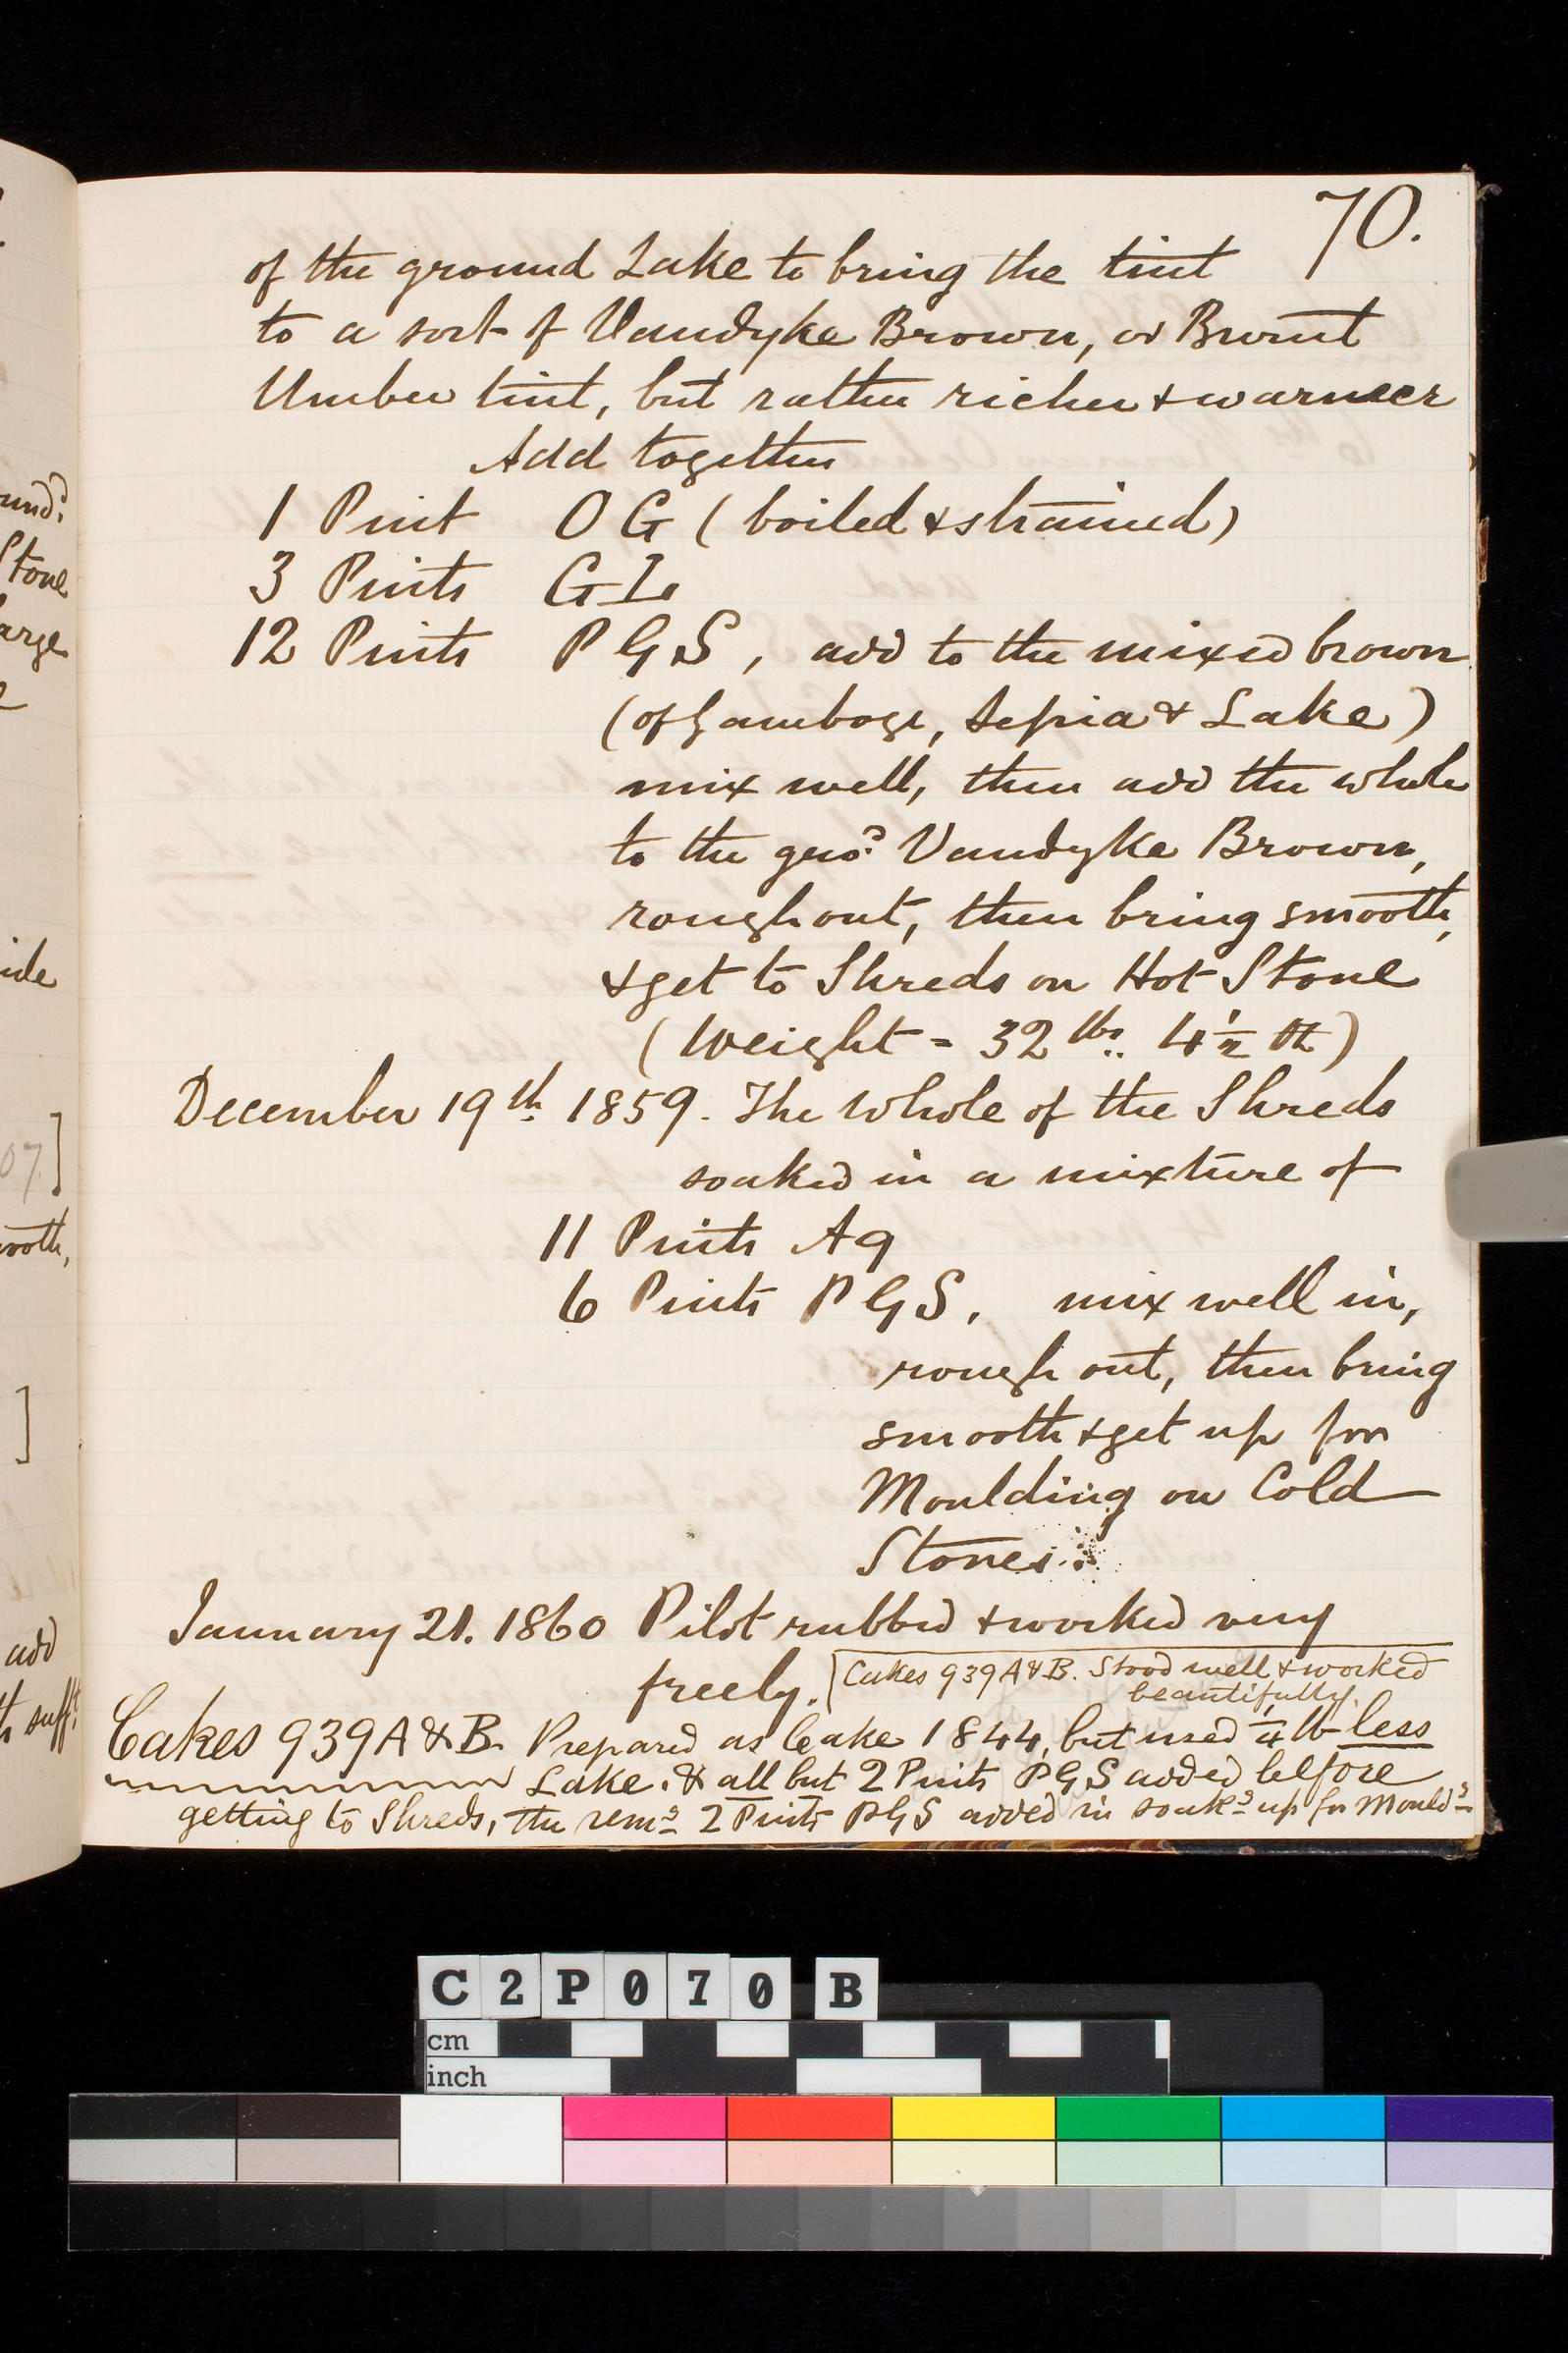 70.
of the ground Lake to bring the tint
to a sort of Vandyke Brown, or Burnt
Umber tint, but rather richer & warmer
Add together
1 Pint O G ( boiled & strained)
3 Pints G L
12 Pints P G S, add to the mixed brown
(of Gamboge, Sepia & Lake)
mix well, then add the whole
to the gro.d Vandyke Brown,
rough out, then bring smooth,
& get to Shreds on Hot Stone
( Weight = 32 lbs. 4 1/2 oz )
December 19th 1859. The Whole of the Shreds
soaked in a mixture of
11 Pints Aq
6 Pints P G S, mix well in,
rough out, then bring
smooth & get up for
Moulding on Cold
Stones.
January 21. 1860 Pilot rubbed & worked very
freely. [Cakes 939 A & B. Stood well & worked
beautifully.
Cakes 939 A & B. Prepared as Cake 1844, but used 1/4 lb less
Lake. & all but 2 Pints P G S added before
getting to Shreds, the rem.g 2 Pints P G S added in soak.g up for Mould.g
und.
Stone
arge
ide
07.]
ooth,
]
add
suff.t
C2P070 B
cm
inch